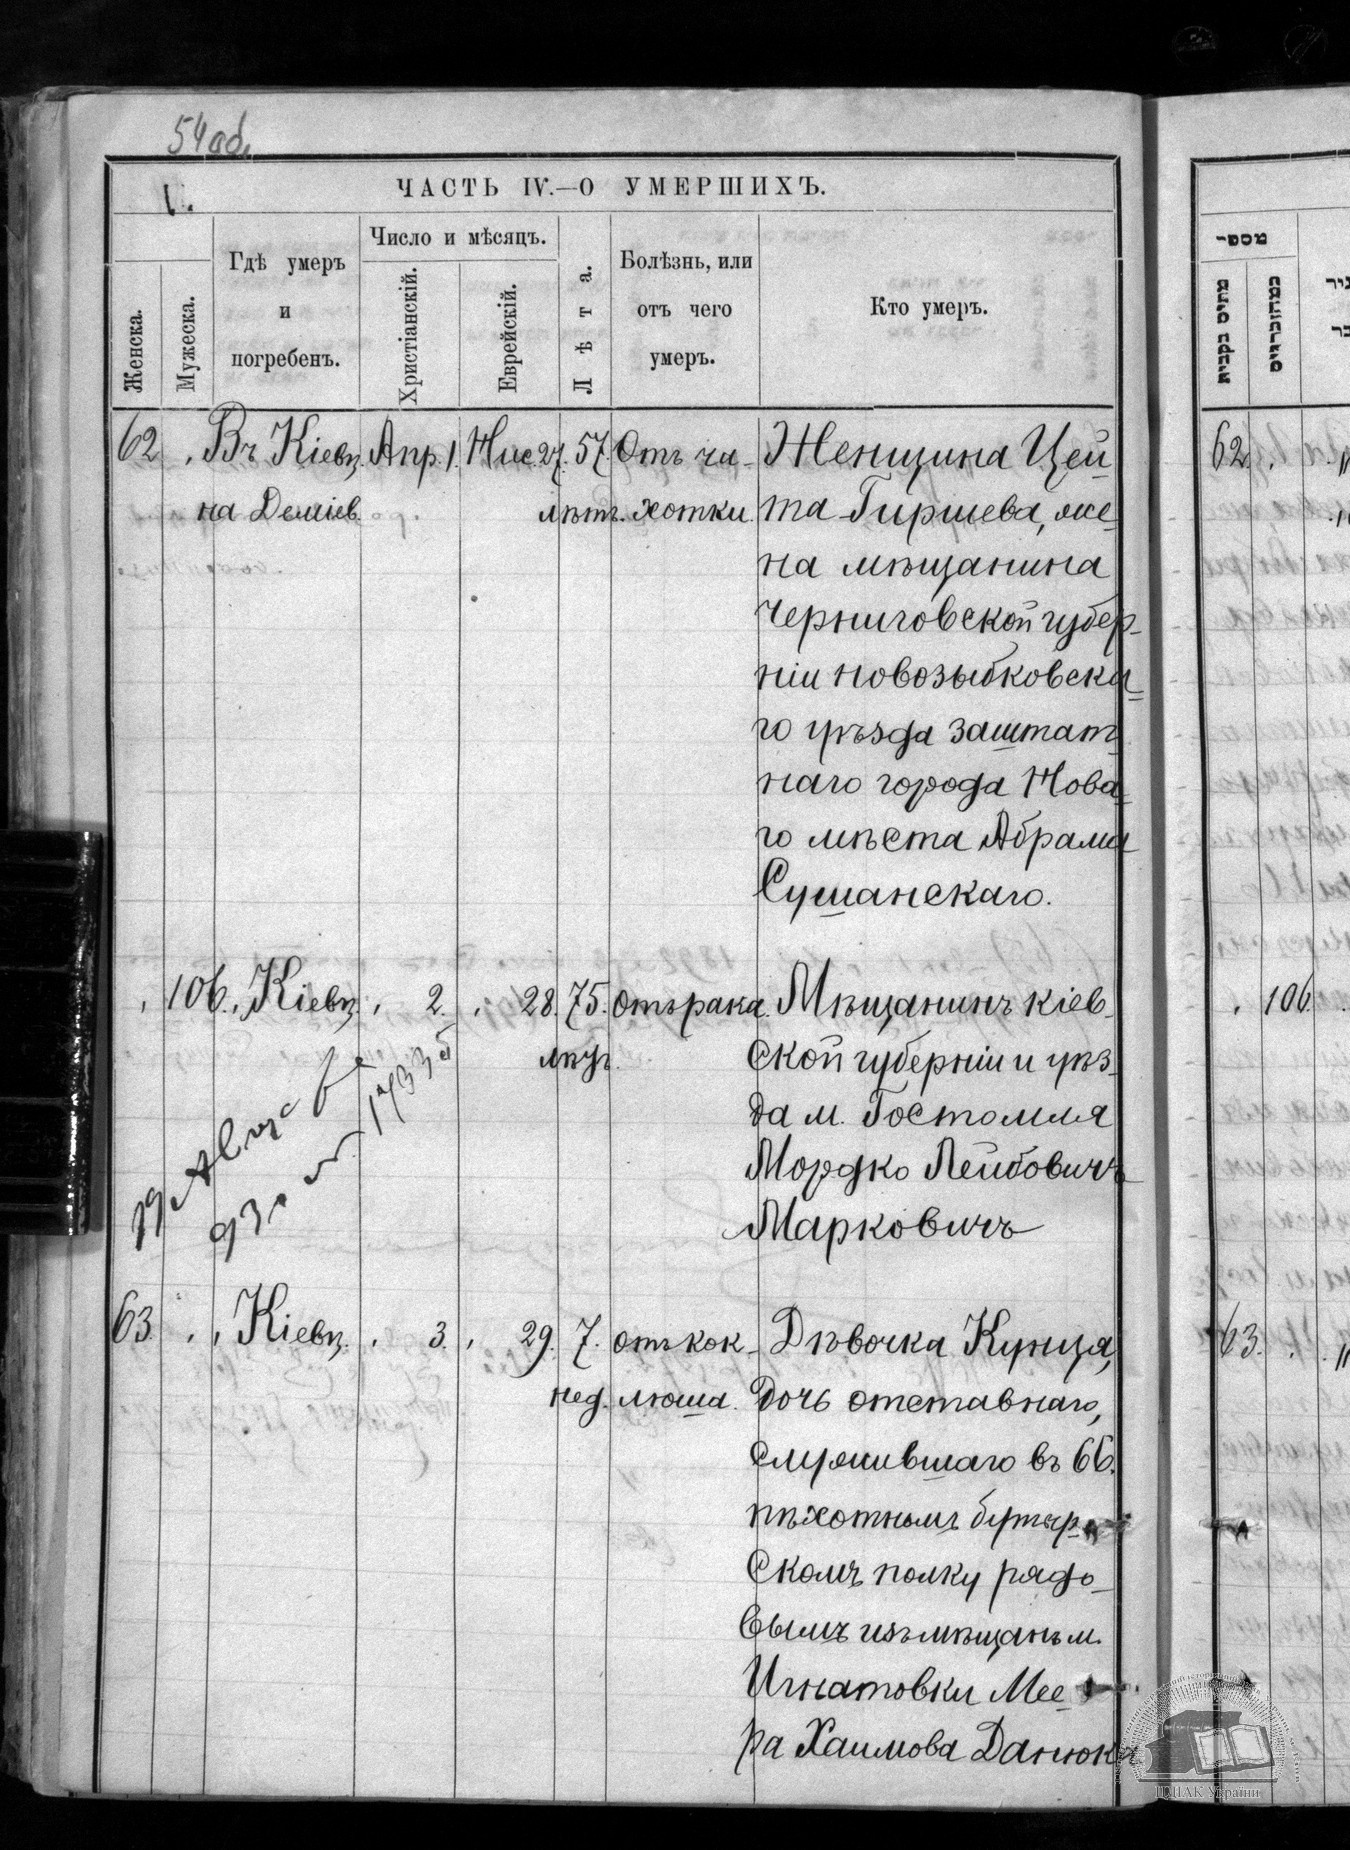 54 об.
ЧАСТЬ IV.—О УМЕРШИХЪ.
Женска.
Мужеска.
Гдѣ умеръ
и
погребенъ.
Число и мѣсяцъ.
Христіанскій.
Еврейскій.
Лѣта.
Болѣзнь, или
отъ чего
умеръ.
Кто умеръ.
מספר
62 Въ Кіевѣ Апр. 1. Нис. 27. 57. Отъ ча- Женщина Цей
на Деміев. лѣтъ. хотки. та Гиршева, же
на мѣщанина
Черниговской губер-
ніи новозыбковска
го уѣзда заштат
наго города Нова
го мѣста Абрама
Сушанскаго.
106. Кіевѣ 2. 28. 75. отъ рака. Мѣщанинъ кіев
лѣтъ. ской губерніи и уѣз-
да м. Гостомля
Мордко Лейбовичъ
Марковичъ
19 Авгус
93. 17335
63. Кіевѣ 3. 29. 7. отъ кок- Дѣвочка Кунця,
нед. люша. дочь отставнаго,
служившаго въ 66.
пѣхотномъ бутыр
скомъ полку рядо-
вымъ изъ мѣщанъ м.
Игнатовки Мее
ра Хаимова Данюка
62
106
63.
ЦДІАК України